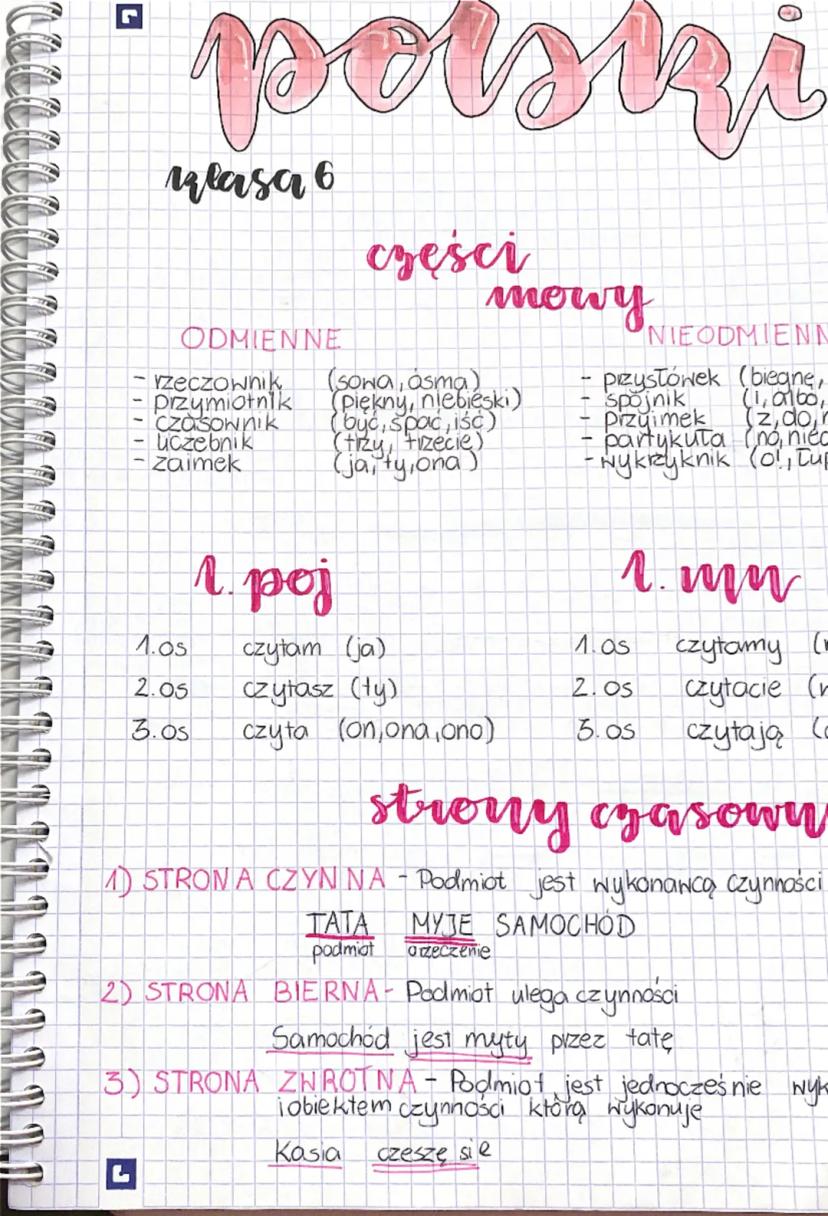 polski
klasa 6
części
mowy
ODMIENNE
- rzeczownik (sowa, ósma)
- przymiotnik (piękny, niebieski)
- czasownik (być, spać, iść)
- liczebnik (trzy, trzecie)
- zaimek (ja, ty, ona)
NIEODMIENN
- przysłówek (biegnę,
- spójnik (i, albo,
- przyimek (z, do,
- partykuła (no, niec
- wykrzyknik (o!, Łup
l. poj
1.os czytam (ja)
2.os czytasz (ty)
3.os czyta (on, ona, ono)
l. mn
1.os czytamy (
2.os czytacie (
3.os czytają (
strony czasown
1) STRONA CZYNNA - Podmiot jest wykonawcą czynności
TATA MYJE SAMOCHÓD
podmiot orzeczenie
2) STRONA BIERNA - Podmiot ulega czynności
Samochód jest myty przez tatę
3) STRONA ZWROTNA - Podmiot jest jednocześnie wyk
i obiektem czynności którą wykonuje
Kasia czeszę się